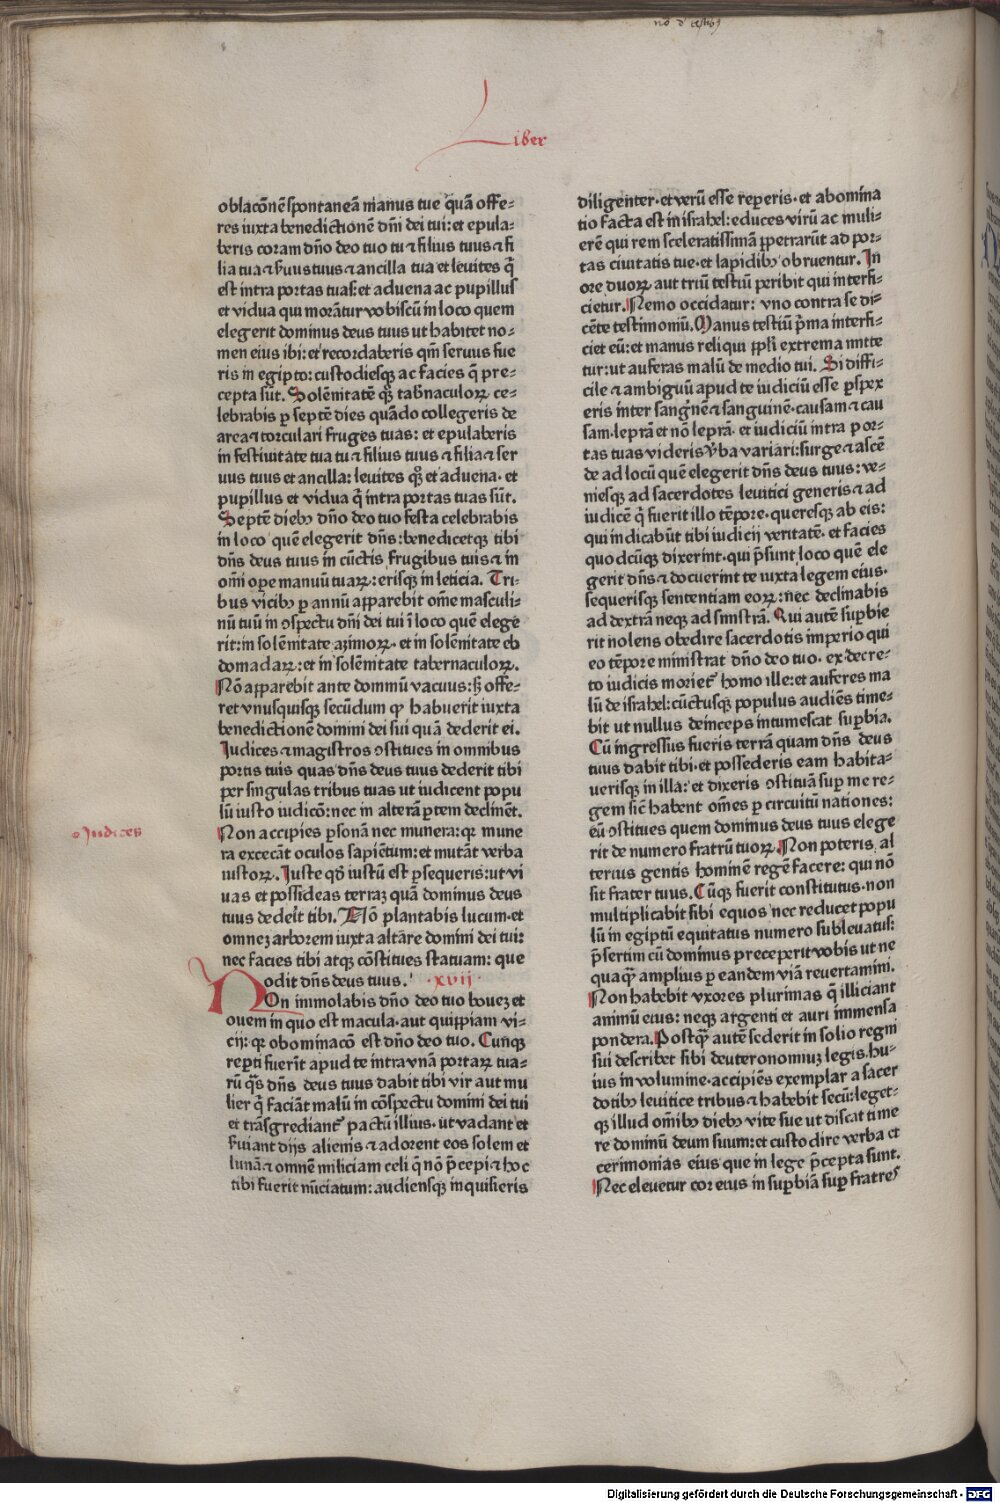 Liber
oblacōnē spontaneā manus tue quā offe⸗
res iuxta benedictionē dn̄i dei tui: et epula⸗
beris coram dn̄o deo tuo tu ⁊ filius tuus ⁊ fi
lia tua ⁊ ſ̓uus tuus ⁊ ancilla tua et leuites q̄
est intra portas tuas: et aduena ac pupillus
et vidua qui morāt̄ur vobiscū in loco quem
elegerit dominus deus tuus ut habitet no⸗
men eius ibi: et recordaberis qm̄ seruus fue
ris in egipto: custodiesqꝫ ac facies q̄ pre⸗
cepta sūt. Solēnitatē qꝫ tab̄naculoꝝ ce⸗
lebrabis ꝑ septē dies quādo collegeris de
area ⁊ torculari fruges tuas: et epulaberis
in festiuitate tua tu ⁊ filius tuus ⁊ filia ⁊ ser
uus tuus et ancilla: leuites qꝫ et aduena· et
pupillus et vidua q̄ intra portas tuas sūt.
Septē diebꝫ dn̄o deo tuo festa celebrabis
in loco quē elegerit dn̄s: benedicetqꝫ tibi
dn̄s deus tuus in cūctis frugibus tuis ⁊ in
om̄i opere manuū tuaꝝ: erisqꝫ in leticia. Tri⸗
bus vicibꝫ ꝑ annū apparebit om̄e masculi⸗
nū tuū in ꝯspectu dn̄i dei tui ī loco quē elege
rit: in solēnitate azimoꝝ· et in solēnitate eb
domadaꝝ: et in solēnitate tabernaculoꝝ.
Nō apparebit ante dominū vacuus: sꝫ offe⸗
ret vnusquisqꝫ secūdum ꝙ habuerit iuxta
benedictionē domini dei sui quā dederit ei.
Iudices ⁊ magistros ꝯstitues in omnibus
portis tuis quas dn̄s deus tuus dederit tibi
per singulas tribus tuas ut iudicent popu
lū iusto iudicō: nec in alterā ꝑtem declinēt.
Non accipies ꝑsonā nec munera: qꝛ mune
ra excecāt oculos sapiētum: et mutāt verba
iustoꝝ. Iuste qđ iustū est ꝑsequeris: ut vi
uas et possideas terraꝫ quā dominus deus
tuus dederīt tibi. Nō plantabis lucum· et
omneꝫ arborem iuxta altāre domini dei tui:
nec facies tibi atqꝫ cōstitues statuam: que
odit dn̄s deus tuus. ·xvij·
NOn immolabis dn̄o deo tuo boueꝫ et
ouem in quo est macula· aut quippiam vi⸗
cij: qꝛ obominacō est dn̄o deo tuo. Cunqꝫ
reꝑti fuerīt apud te intra vnā portaꝝ tua⸗
rū q̄s dn̄s deus tuus dabit tibi vir aut mu
lier q̄ faciāt malū in cōspectu domini dei tui
et trāsgrediant̄ pactū illius· ut vadant et
ſ̓uiant dijs alienis ⁊ adorent eos solem et
lunā ⁊ omnē miliciam celi q̄ nō p̄cepi ⁊ hoc
tibi fuerit nūciatum: audiensqꝫ inquisieris
Judices
diligenter· et verū esse reperis· et abomina
tio facta est in israhel: educes virū ac muli⸗
erē qui rem sceleratissimā ꝑpetrarūt ad por⸗
tas ciuitatis tue· et lapidibꝫ obruentur. In
ore duoꝝ aut triū testiū peribit qui interfi⸗
cietur. Nemo occidatur: vno contra se di⸗
cēte testimoniū. Manus testiū p̄ma interfi⸗
ciet eū: et manus reliqui ppl̄i extrema mitte
tur: ut auferas malū de medio tui. Si diffi⸗
cile ⁊ ambiguū apud te iudiciū esse ꝑspex
eris inter sangnē ⁊ sanguinē· causam ⁊ cau
sam· leprā et nō leprā· et iudiciū intra por⸗
tas tuas videris v̓ba variari: surge ⁊ ascē
de ad locū quē elegerit dn̄s deus tuus: ve⸗
niesqꝫ ad sacerdotes leuitici generis ⁊ ad
iudicē q̄ fuerit illo tēpore· queresqꝫ ab eis:
qui indicabūt tibi iudicij veritatē· et facies
quodcūqꝫ dixerint· qui p̄sunt loco quē ele
gerit dn̄s ⁊ docuerint te iuxta legem eius·
sequerisqꝫ sententiam eoꝝ: nec declinabis
ad dextrā neqꝫ ad sinistrā. Qui autē suꝑbie
rit nolens obedire sacerdotis imperio qui
eo tēpore ministrat dn̄o deo tuo· ex decre⸗
to iudicis moriet̄ homo ille: et auferes ma
lū de israhel: cūctusqꝫ populus audiēs time⸗
bit ut nullus deinceps intumescat suꝑbia.
Cū ingressus fueris terrā quam dn̄s deus
tuus dabit tibi· et possederis eam habita⸗
uerisqꝫ in illa: et dixeris ꝯstituā suꝑ me re⸗
gem sic̄ habent om̄es ꝑ circuitū nationes:
eū ꝯstitues quem dominus deus tuus elege
rit de numero fratrū tuoꝝ. Non poteris al
terius gentis hominē regē facere: qui nō
sit frater tuus. Cūqꝫ fuerit constitutus· non
multiplicabit sibi equos nec reducet popu
lū in egiptū equitatus numero subleuatus:
p̄sertim cū dominus preceperit vobis ut ne
quaq̄ amplius ꝑ eandem viā reuertamini.
Non habebit vxores plurimas q̄ illiciant
animū eius: neqꝫ argenti et auri immensa
pondera. Postq̄ autē sederit in solio regni
sui describet sibi deuteronomiuꝫ legis hu⸗
ius in volumine· accipiēs exemplar a sacer
dotibꝫ leuitice tribus ⁊ habebit secū: leget⸗
qꝫ illud om̄ibꝫ diebꝫ vite sue ut discat time
re dominū deum suum: et custodire verba et
cerimonias eius que in lege p̄cepta sunt.
Nec eleuetur cor eius in suꝑbiā suꝑ fratres
Digitalisierung gefördert durch die Deutsche Forschungsgemeinschaft - DFG